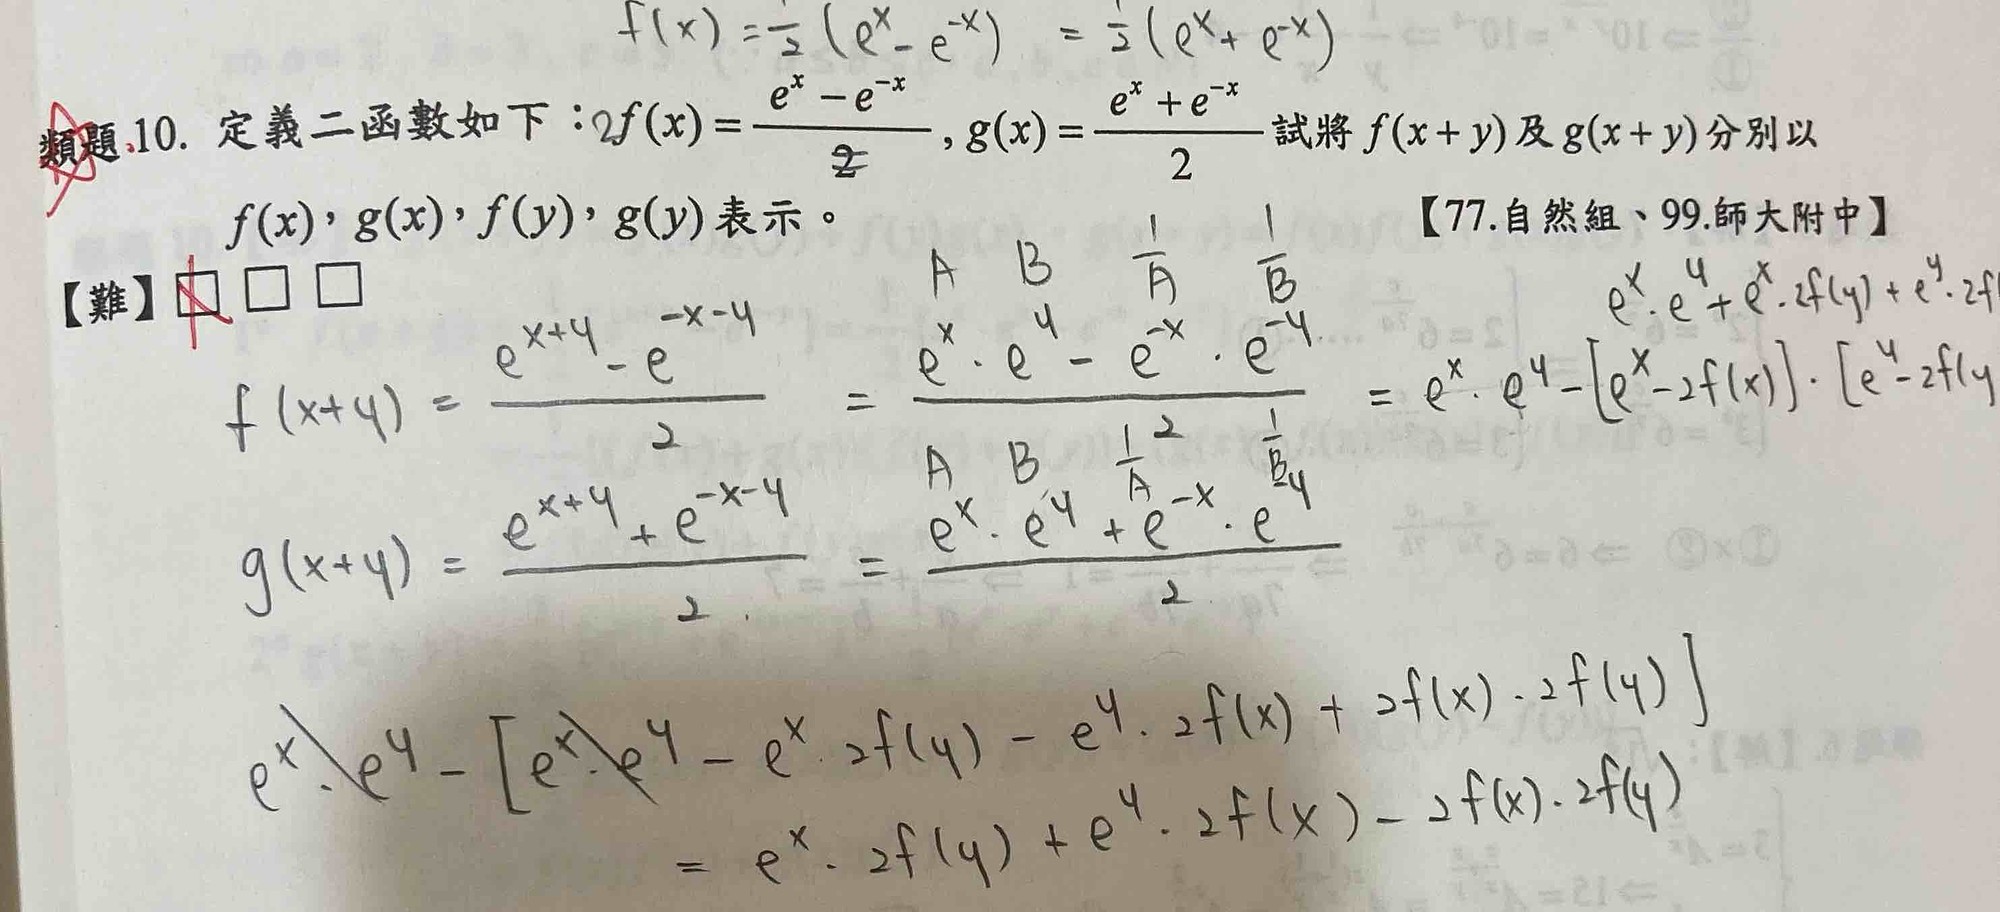 f(x) = 1/2 (e^x - e^-x) = 1/2 (e^x + e^-x)
類題.10. 定義二函數如下：2f(x) = (e^x - e^-x)/2 , g(x) = (e^x + e^-x)/2 試將 f(x+y) 及 g(x+y) 分別以
f(x)，g(x)，f(y)，g(y) 表示。 【77.自然組、99.師大附中】
【難】□ □ □
A B 1/A 1/B
e^x · e^y + e^x · 2f(y) + e^y · 2f
f(x+y) = (e^(x+y) - e^(-x-y))/2 = (e^x · e^y - e^-x · e^-y)/2 = e^x · e^y - [e^x - 2f(x)] · [e^y - 2f(y
A B 1/A 1/B
g(x+y) = (e^(x+y) + e^(-x-y))/2 = (e^x · e^y + e^-x · e^-y)/2
e^x · e^y - [e^x · e^y - e^x · 2f(y) - e^y · 2f(x) + 2f(x) · 2f(y)]
= e^x · 2f(y) + e^y · 2f(x) - 2f(x) · 2f(y)